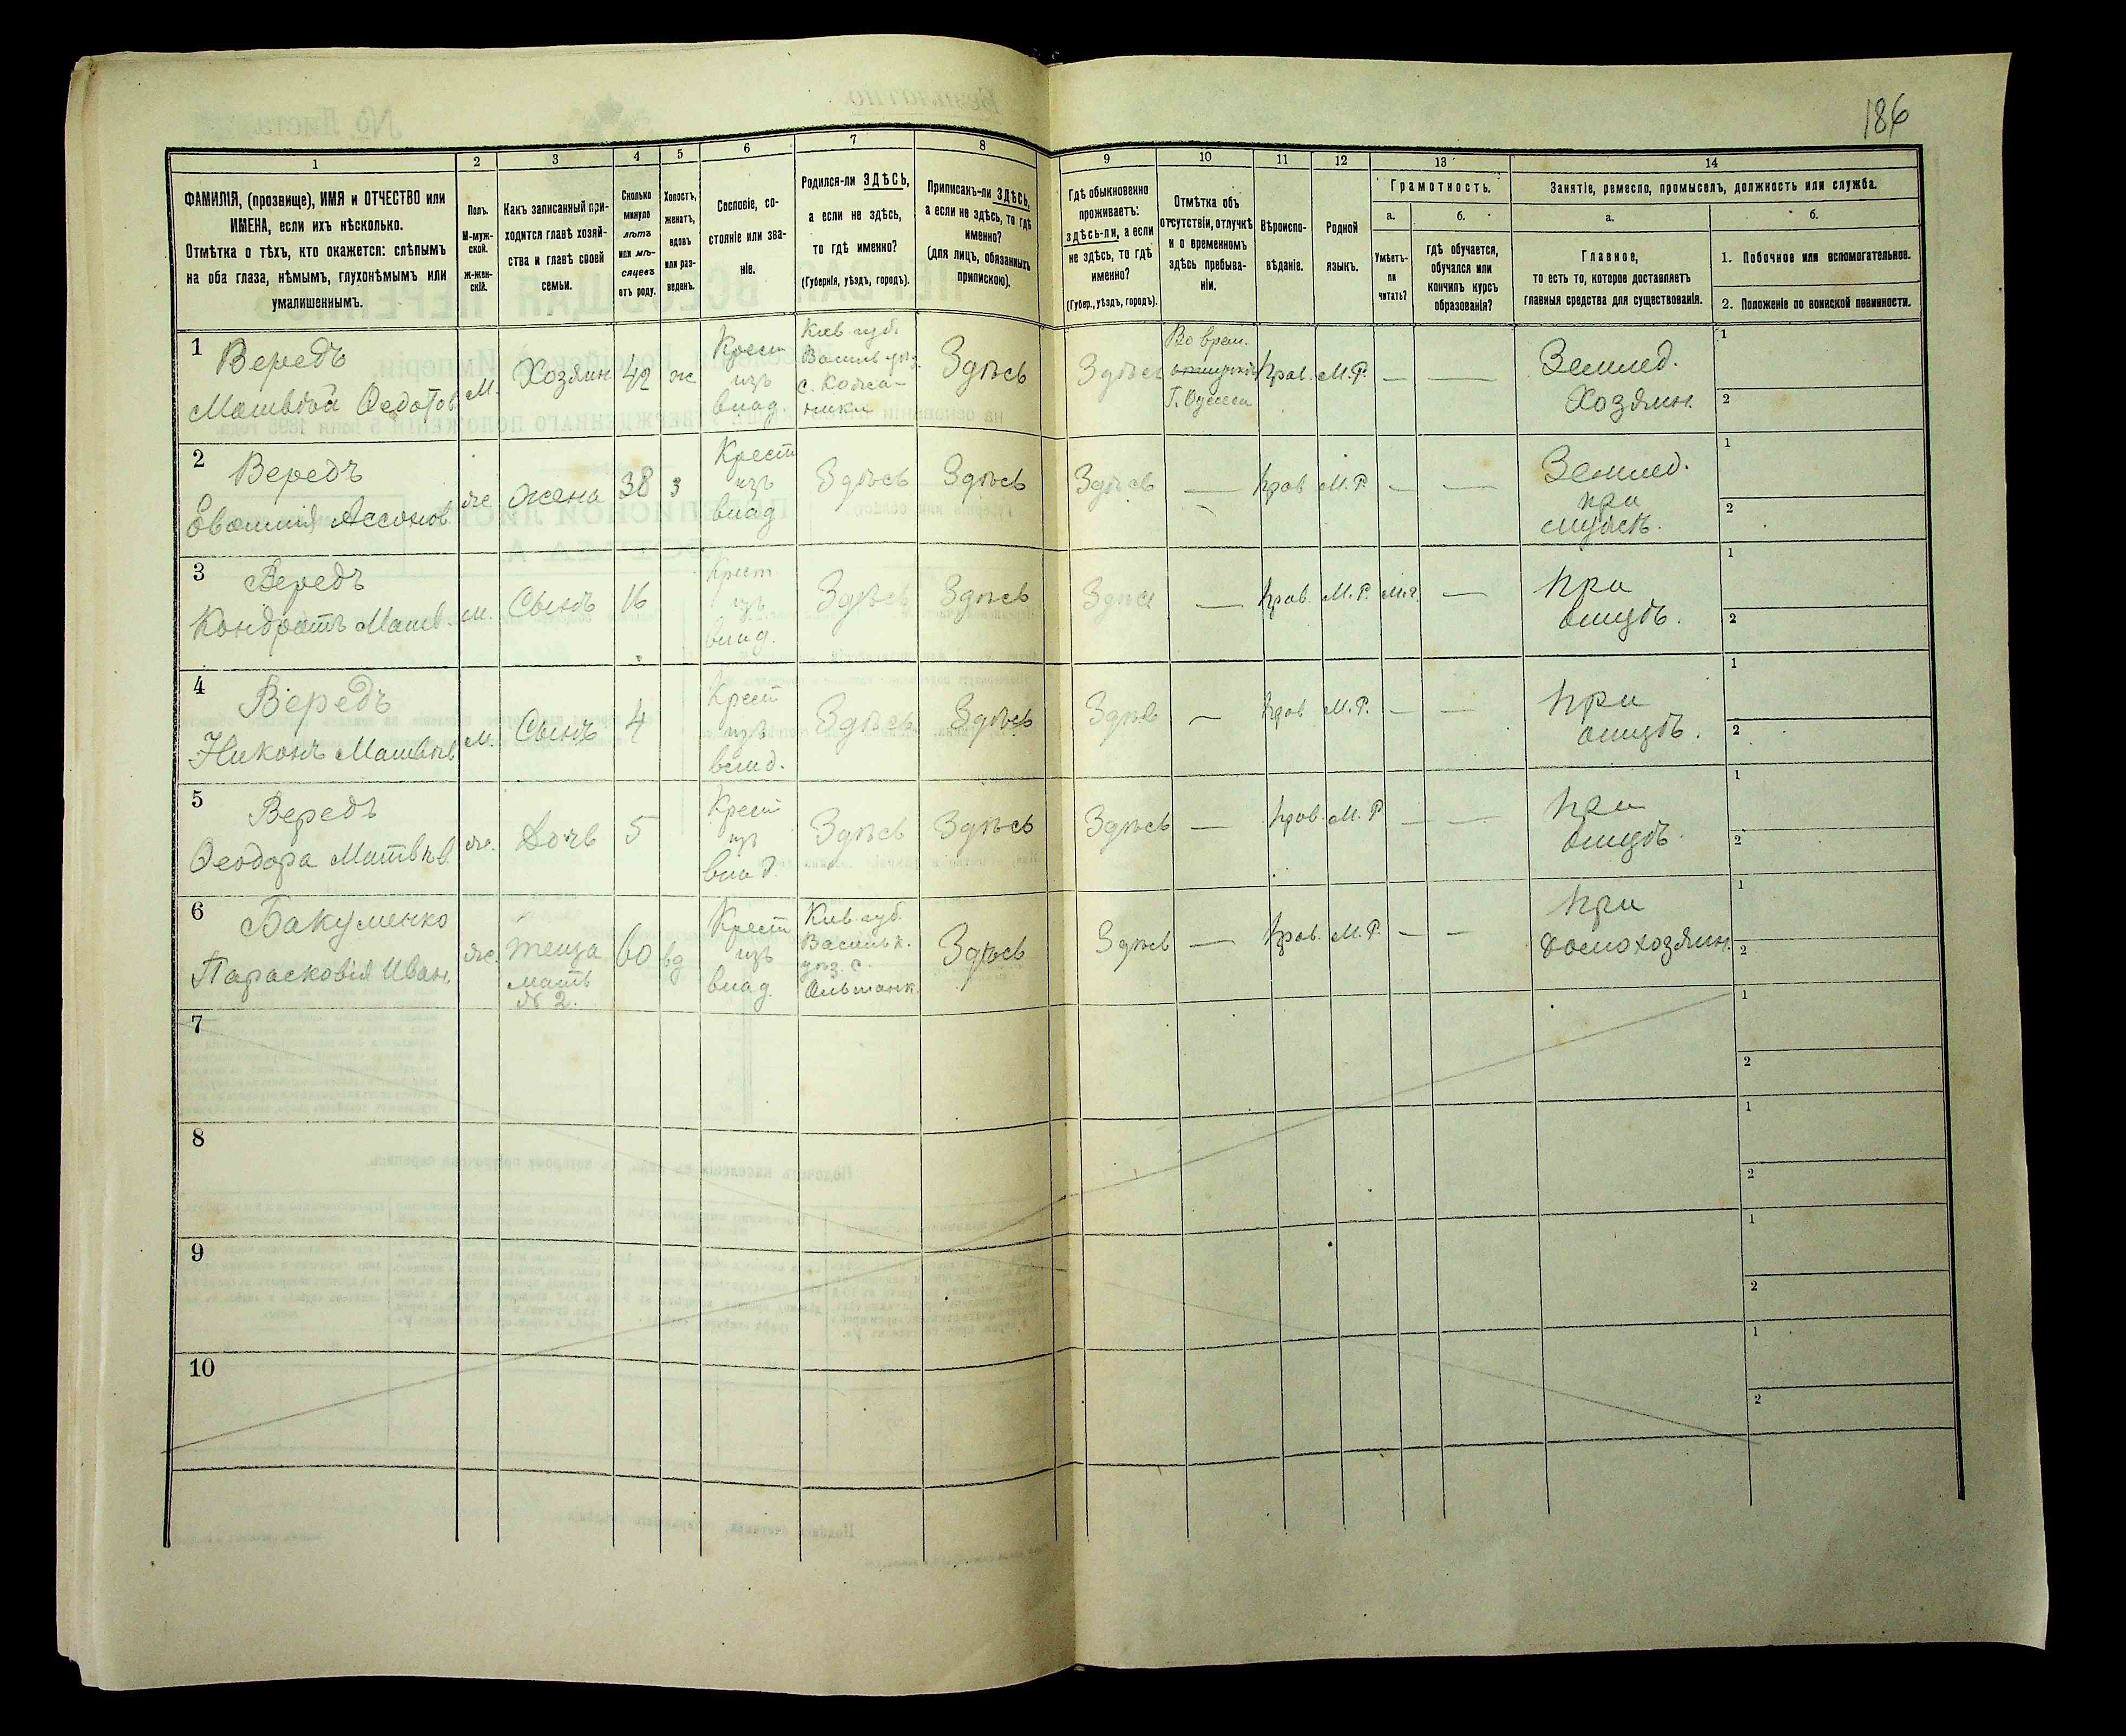 186
1
2
3
4
5
6
7
8
9
10
11
12
13
14
ФАМИЛІЯ, (прозвище), ИМЯ и ОТЧЕСТВО или
ИМЕНА, если ихъ нѣсколько.
Отмѣтка о тѣхъ, кто окажется: слѣпымъ
на оба глаза, нѣмымъ, глухонѣмымъ или
умалишеннымъ.
Полъ.
М-муж-
ской.
ж-жен-
скій.
Какъ записанный при-
ходится главѣ хозяй-
ства и главѣ своей
семьи.
Сколько
минуло
лѣтъ
или мѣ-
сяцевъ
отъ роду.
Холостъ,
женатъ,
вдовъ
или раз-
веденъ.
Сословіе, со-
стояніе или зва-
ніе.
Родился-ли ЗДѢСЬ,
а если не здѣсь,
то гдѣ именно?
(Губернія, уѣздъ, городъ).
Приписанъ-ли ЗДѢСЬ,
а если не здѣсь, то гдѣ
именно?
(для лицъ, обязанныхъ
припискою).
Гдѣ обыкновенно
проживаетъ:
здѣсь-ли, а если
не здѣсь, то гдѣ
именно?
(Губер., уѣздъ, городъ).
Отмѣтка объ
отсутствіи, отлучкѣ
и о временномъ
здѣсь пребыва-
ніи.
Вѣроиспо-
вѣданіе.
Родной
языкъ.
Грамотность.
а.
б.
Умѣетъ-
ли
читать?
гдѣ обучается,
обучался или
кончилъ курсъ
образованія?
Занятіе, ремесло, промыселъ, должность или служба.
а.
б.
Главное,
то есть то, которое доставляетъ
главныя средства для существованія.
1. Побочное или вспомогательное.
2. Положеніе по воинской повинности.
1
Вередъ
Матвѣй Федотов.
М.
Хозяин
42
ж
Крест
изъ
влад.
Кіев. губ.
Васильк. уѣз.
с. Кожан-
ники
Здѣсь
Здѣсь
Во врем.
отлучкѣ
Г. Одесса
Прав.
М.Р.
—
—
Землед.
Хозяин.
1
2
2
Вередъ
Ассонов.
же
жена
38
з
Крест
изъ
влад
Здѣсь
Здѣсь
Здѣсь
—
Прав
М.Р.
—
—
Землед.
при
мужѣ.
1
2
3
Вередъ
Кондратъ Матв.
м.
Сынъ
16
Крест
изъ
влад.
Здѣсь
Здѣсь
Здѣсь
—
Прав.
М.Р.
—
при
отцѣ.
1
2
4
Вередъ
Никонъ Матвѣев
м.
Сынъ
4
Крест
изъ
влад.
Здѣсь
Здѣсь
Здѣсь
—
Прав
М.Р.
—
—
при
отцѣ.
1
2
5
Вередъ
Феодора Матвѣев.
же.
Дочь
5
Крест
изъ
влад.
Здѣсь
Здѣсь
Здѣсь
—
Прав.
М.Р
—
—
при
отцѣ.
1
2
6
Бакуменко
Парасковія Иван.
же.
теща
мать
№ 2.
60
вд
Крест
изъ
влад.
Кіев. губ.
Васильк.
уѣз. с.
Ольшанк.
Здѣсь
Здѣсь
—
Прав.
М.Р.
—
—
при
домохозяин.
1
2
7
1
2
8
1
2
9
1
2
10
1
2